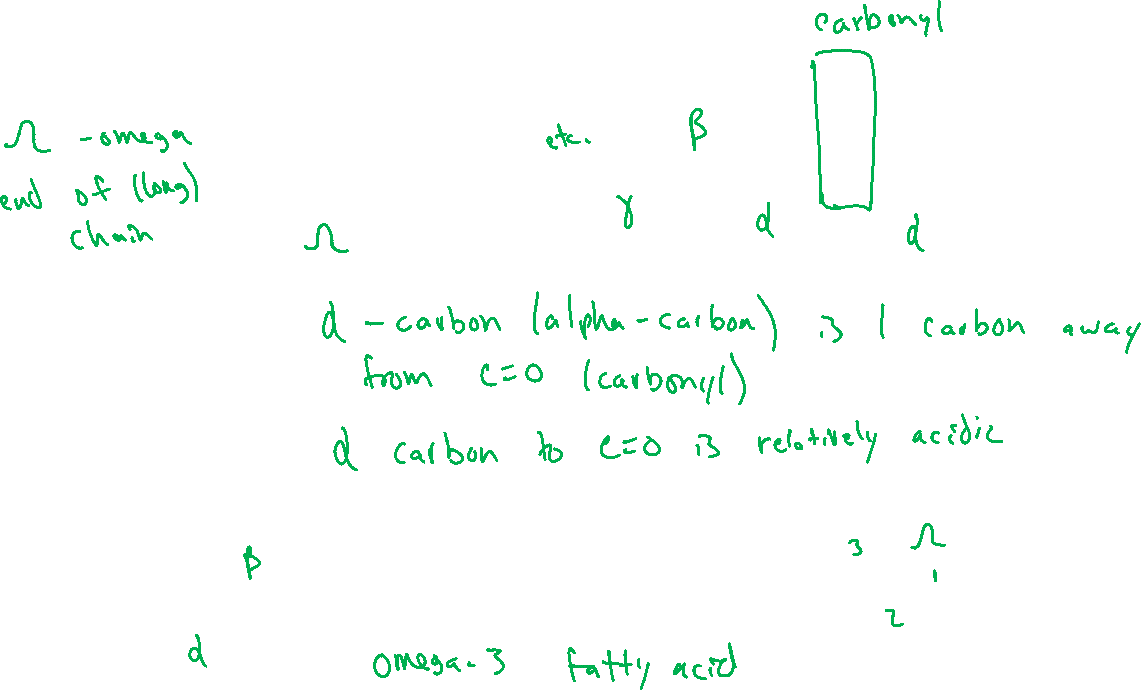 carbonyl
Ω - omega
etc.
β
end of (long)
γ
α
α
chain
Ω
α - carbon (alpha - carbon) is 1 carbon away
from C=O (carbonyl)
α carbon to C=O is relatively acidic
β
3
Ω
1
2
α
omega-3 fatty acid